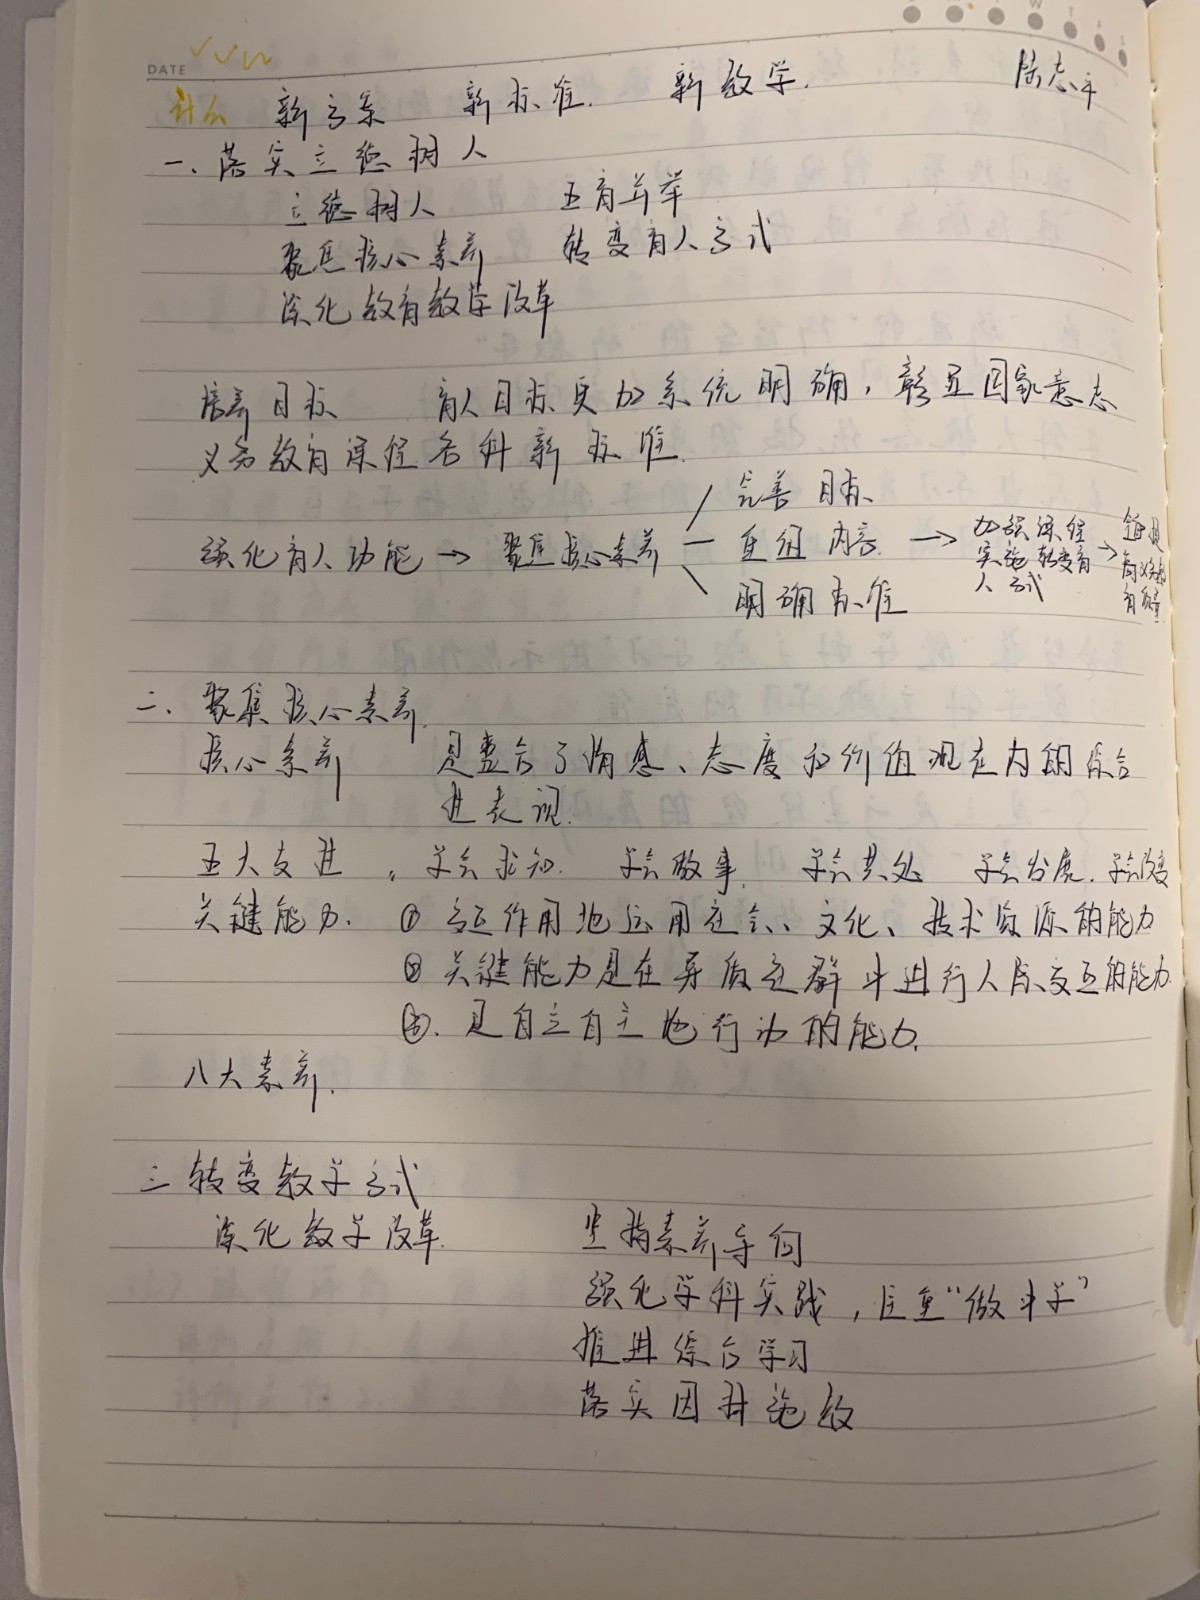 DATE
W T F S
什么 新方案 新标准. 新教学. 陈志平
一、落实立德树人
立德树人 五育并举
聚焦核心素养 转变育人方式
深化教育教学改革
培养目标 育人目标更加系统明确,彰显国家意志
义务教育课程各科新标准.
完善目标
强化育人功能 → 聚焦核心素养 — 重组内容 → 加强课程实施 转变育人方式 →
明确标准
二、聚集核心素养.
核心素养 是整合了情感、态度和价值观在内的综合
性表现.
五大支柱, 学会求知. 学会做事. 学会共处 学会发展. 学会改变
关键能力. ① 交互作用地运用社会、文化、技术资源的能力
② 关键能力是在异质社群中进行人际交互的能力.
③. 是自立自主地行动的能力.
八大素养.
三 转变教学方式
深化教学改革. 坚持素养导向
强化学科实践,注重“做中学”
推进综合学习
落实因材施教